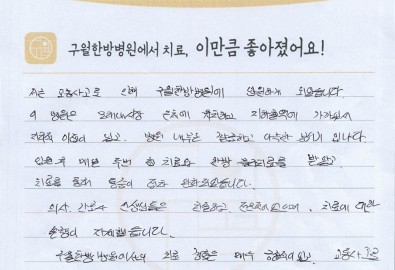 구월한방병원에서 치료, 이만큼 좋아졌어요!
저는 교통사고로 인해 구월한방병원에 입원하게 되었습니다
이 병원은 모래내시장 근처에 위치하고 지하철역에 가까워서
이점이 있고. 병원 내부는 깔끔하고 아늑한 분위기 입니다.
입원 후 매번 추나 치료와 한방 물리치료를 받았고
치료를 통해 통증이 점차 완화되었습니다.
의사, 간호사 선생님들은 친절하고 치료에 대한
설명이 자세했습니다.
구월한방병원에서의 치료 경험은 매우 교통사고로